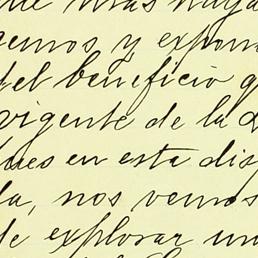 que más haya
vemos y expon
del beneficio q
vigente de la L
pues en esta dis
la, nos vemos
de explorar un